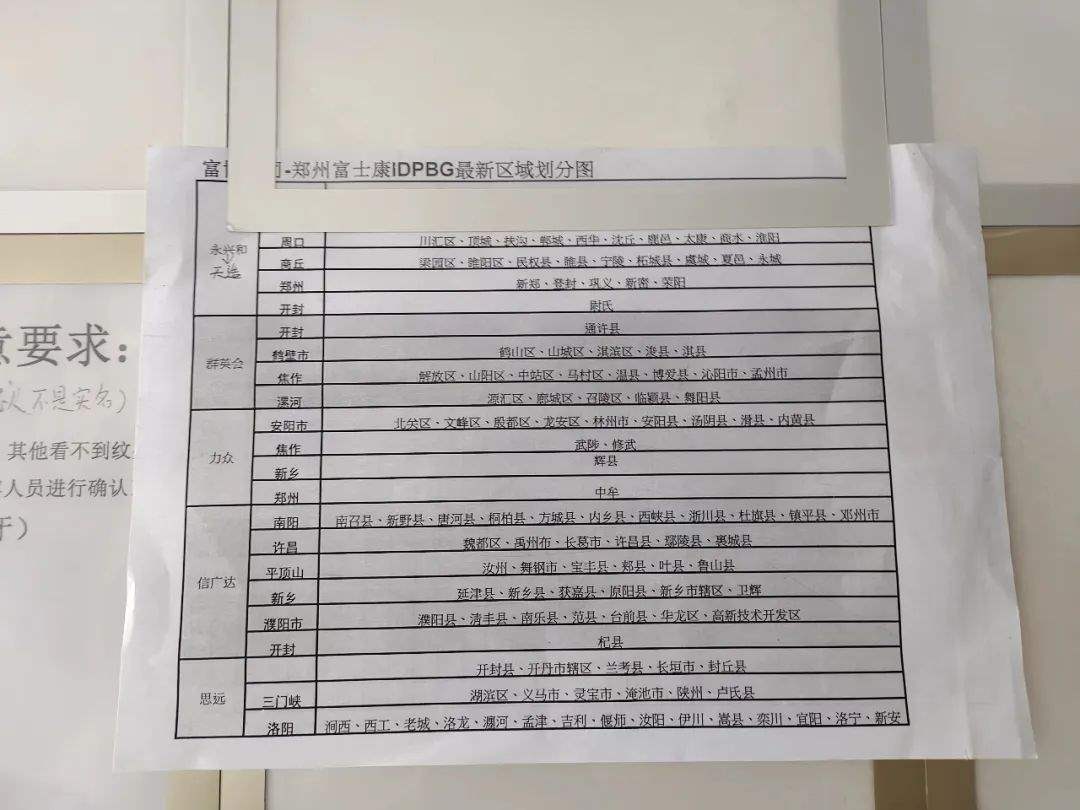 -郑州富士康IDPBG最新区域划分图
永兴和
天运
周口 川汇区、顶城、扶沟、郸城、西华、沈丘、鹿邑、太康、商水、淮阳
商丘 梁园区、睢阳区、民权县、睢县、宁陵、柘城县、虞城、夏邑、永城
郑州 新郑、登封、巩义、新密、荥阳
开封 尉氏
群英会
开封 通许县
鹤壁市 鹤山区、山城区、淇滨区、浚县、淇县
焦作 解放区、山阳区、中站区、马村区、温县、博爱县、沁阳市、孟州市
漯河 源汇区、郾城区、召陵区、临颍县、舞阳县
力众
安阳市 北关区、文峰区、殷都区、龙安区、林州市、安阳县、汤阴县、滑县、内黄县
焦作 武陟、修武
新乡 辉县
郑州 中牟
信广达
南阳 南召县、新野县、唐河县、桐柏县、方城县、内乡县、西峡县、淅川县、杜旗县、镇平县、邓州市
许昌 魏都区、禹州布、长葛市、许昌县、鄢陵县、襄城县
平顶山 汝州、舞钢市、宝丰县、郏县、叶县、鲁山县
新乡 延津县、新乡县、获嘉县、原阳县、新乡市辖区、卫辉
濮阳市 濮阳县、清丰县、南乐县、范县、台前县、华龙区、高新技术开发区
开封 杞县
思远
开封县、开丹市辖区、兰考县、长垣市、封丘县
三门峡 湖滨区、义马市、灵宝市、渑池市、陕州、卢氏县
洛阳 涧西、西工、老城、洛龙、瀍河、孟津、吉利、偃师、汝阳、伊川、嵩县、栾川、宜阳、洛宁、新安
要求：
不是实名）
其他看不到纹
人员进行确认
于）